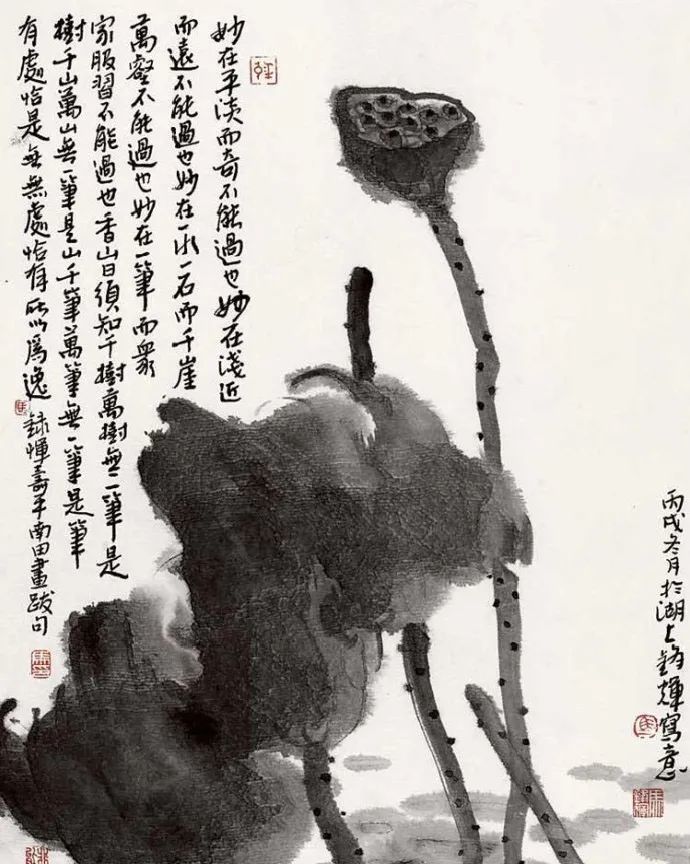 丙戌冬月於湖上鋒輝寫意
妙在平淡而奇不能過也妙在淺近
而遠不能過也妙在一水一石而千崖
萬壑不能過也妙在一筆而衆
家服習不能過也香山曰須知千樹萬樹無一筆是
樹千山萬山無一筆是山千筆萬筆無一筆是筆
有處恰是無無處恰有所以爲逸 錄惲壽平南田畫跋句